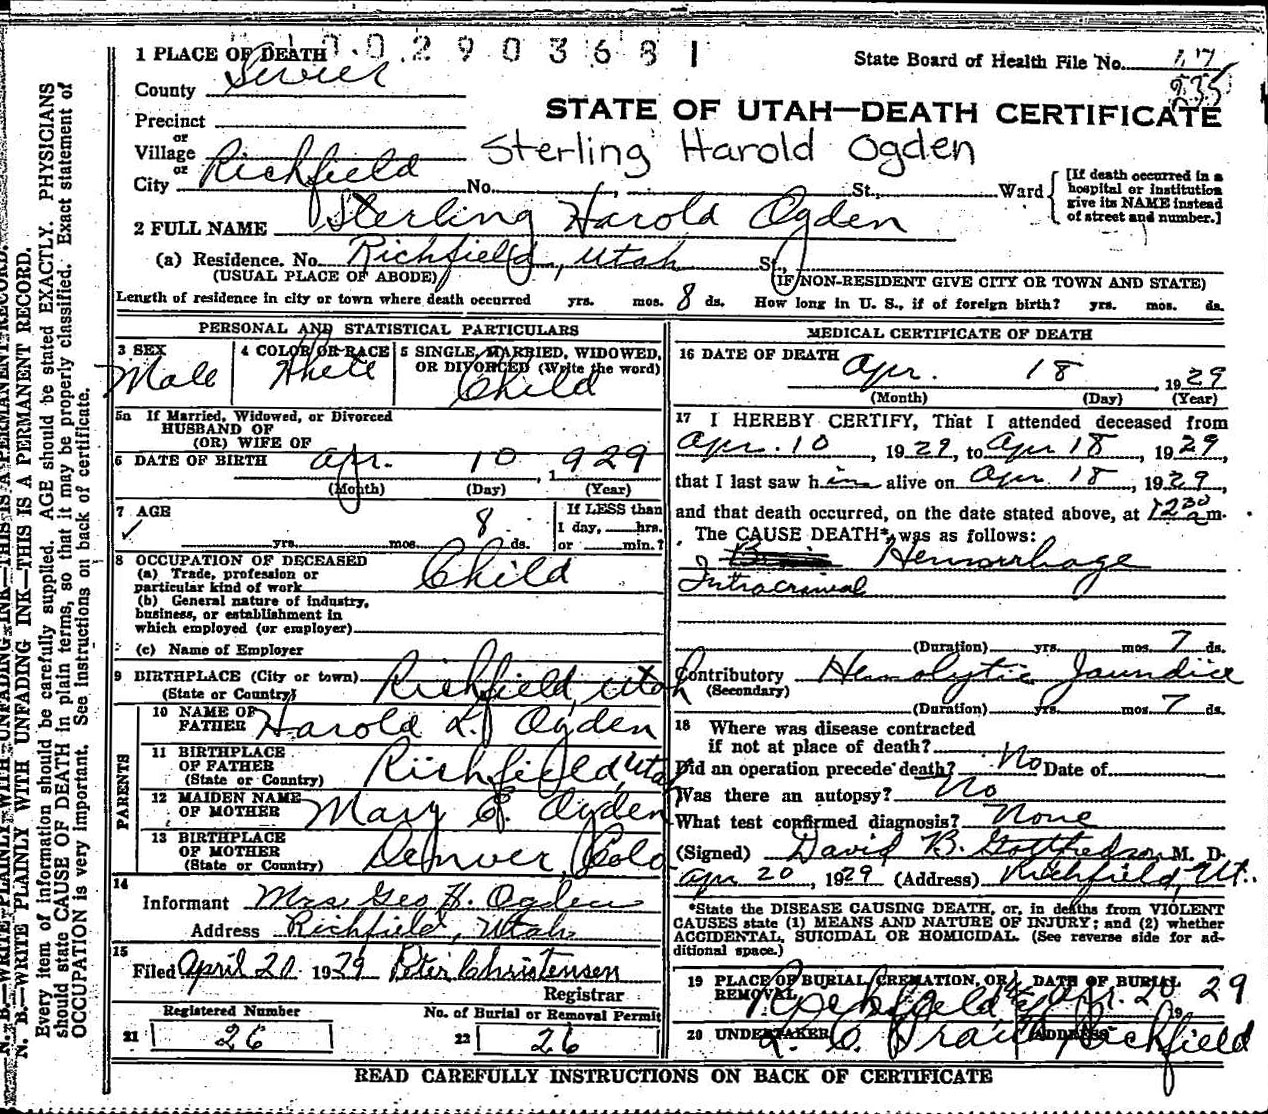 1 PLACE OF DEATH
1002903681
State Board of Health File No. 17
235
County Sevier
STATE OF UTAH—DEATH CERTIFICATE
Precinct
or
Village
Sterling Harold Ogden
or
City Richfield No. St., Ward
[If death occurred in a hospital or institution give its NAME instead of street and number.]
2 FULL NAME Sterling Harold Ogden
(a) Residence. No. Richfield, Utah St.,
(USUAL PLACE OF ABODE) (IF NON-RESIDENT GIVE CITY OR TOWN AND STATE)
Length of residence in city or town where death occurred yrs. mos. 8 ds. How long in U. S., if of foreign birth? yrs. mos. ds.
PERSONAL AND STATISTICAL PARTICULARS
3 SEX Male
4 COLOR OR RACE White
5 SINGLE, MARRIED, WIDOWED, OR DIVORCED (Write the word) Child
5a If Married, Widowed, or Divorced
HUSBAND OF
(OR) WIFE OF
6 DATE OF BIRTH Apr. 10 1929
(Month) (Day) (Year)
7 AGE
yrs. mos. 8 ds.
If LESS than
1 day, hrs.
or min.?
8 OCCUPATION OF DECEASED
(a) Trade, profession or
particular kind of work Child
(b) General nature of industry,
business, or establishment in
which employed (or employer)
(c) Name of Employer
9 BIRTHPLACE (City or town) Richfield, Utah
(State or Country)
PARENTS
10 NAME OF FATHER Harold L. Ogden
11 BIRTHPLACE OF FATHER Richfield, Utah
(State or Country)
12 MAIDEN NAME OF MOTHER Mary E. Ogden
13 BIRTHPLACE OF MOTHER Denver, Colo
(State or Country)
14
Informant Mrs Geo H. Ogden
Address Richfield, Utah
15
Filed April 20 1929 Peter Christensen
Registrar
Registered Number
21 26
No. of Burial or Removal Permit
22 26
MEDICAL CERTIFICATE OF DEATH
16 DATE OF DEATH
Apr. 18, 1929
(Month) (Day) (Year)
17 I HEREBY CERTIFY, That I attended deceased from
Apr. 10, 1929, to Apr 18, 1929,
that I last saw him alive on Apr 18, 1929,
and that death occurred, on the date stated above, at 1230 am.
The CAUSE DEATH*, was as follows:
Hemorrhage
Intracrinal
(Duration) yrs. mos. 7 ds.
Contributory Hemolytic Jaundice
(Secondary)
(Duration) yrs. mos 7 ds.
18 Where was disease contracted
if not at place of death?
Did an operation precede death? No Date of
Was there an autopsy? No
What test confirmed diagnosis? None
(Signed) David B. Gottfredson M. D.
Apr 20, 1929 (Address) Richfield, Ut.
*State the DISEASE CAUSING DEATH, or, in deaths from VIOLENT
CAUSES state (1) MEANS AND NATURE OF INJURY; and (2) whether
ACCIDENTAL, SUICIDAL OR HOMICIDAL. (See reverse side for ad-
ditional space.)
19 PLACE OF BURIAL, CREMATION, OR REMOVAL Richfield, Ut
DATE OF BURIAL Apr. 20 1929
20 UNDERTAKER L. C.
ADDRESS Richfield
READ CAREFULLY INSTRUCTIONS ON BACK OF CERTIFICATE
N. B.—WRITE PLAINLY WITH UNFADING INK—THIS IS A PERMANENT RECORD.
N. B.—WRITE PLAINLY WITH UNFADING INK—THIS IS A PERMANENT RECORD.
Every item of information should be carefully supplied. AGE should be stated EXACTLY. PHYSICIANS
should state CAUSE OF DEATH in plain terms, so that it may be properly classified. Exact statement of
OCCUPATION is very important. See instructions on back of certificate.